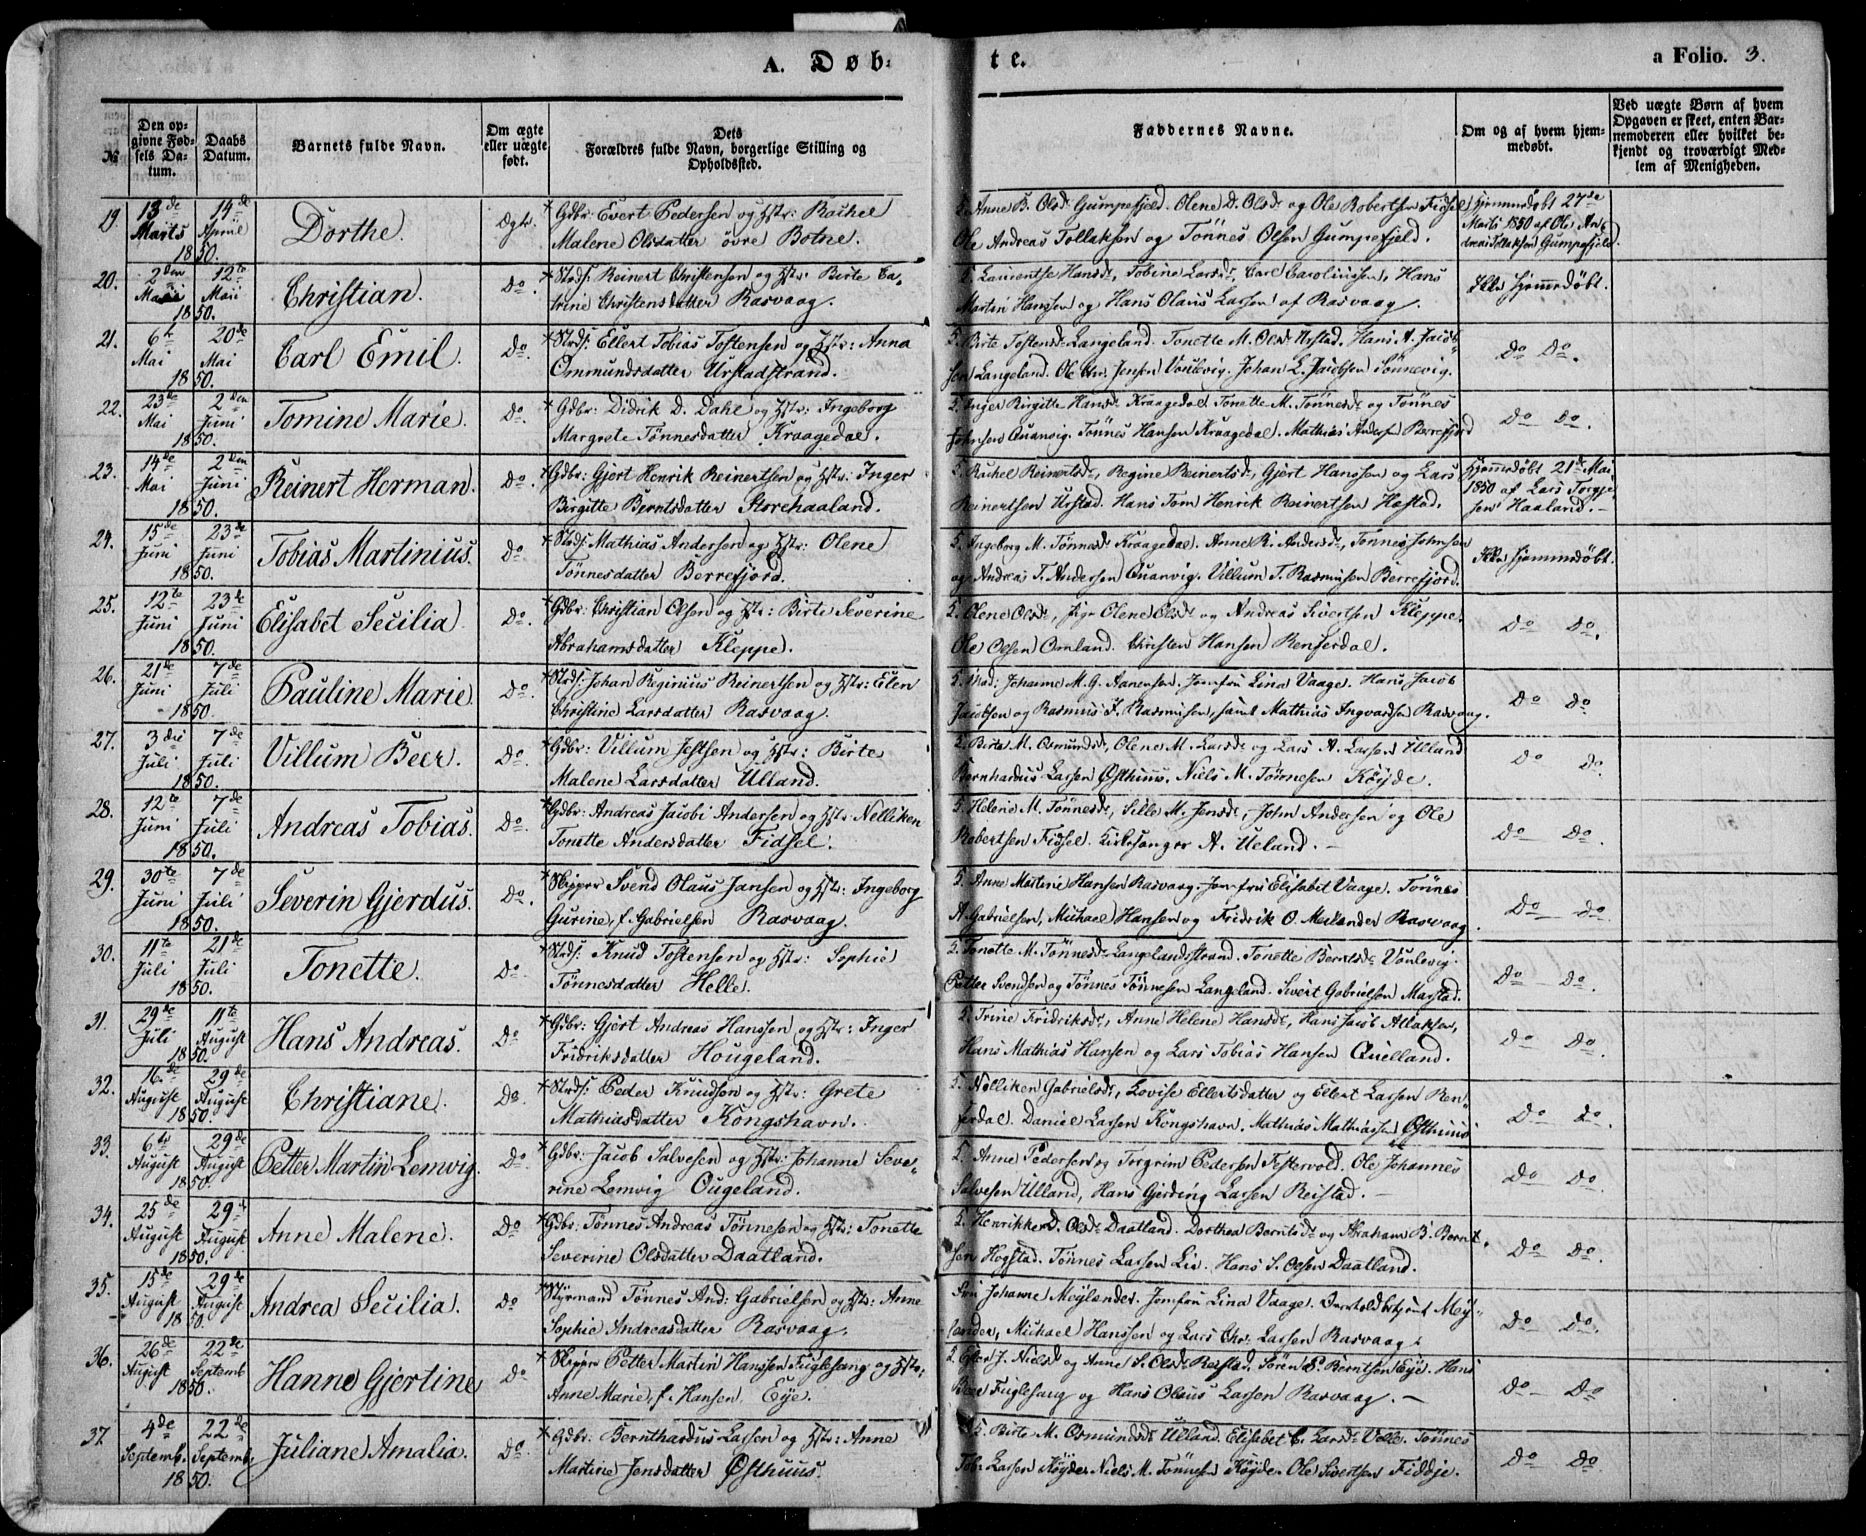 A. Døb=
te.
a Folio. 3.
№
Den op-
givne Fød-
sels Da-
tum.
Daabs
Datum.
Barnets fulde Navn.
Om ægte
eller uægte
født.
Dets
Forældres fulde Navn, borgerlige Stilling og
Opholdssted.
Faddernes Navne.
Om og af hvem hjem-
medøbt.
Ved uægte Børn af hvem
Opgaven er skeet, enten Bar-
nemoderen eller hvilket be-
kjendt og troværdigt Med-
lem af Menigheden.
19. 13de Marts 14de April 1850. Dorthe. Ægte.
* Gdbr: Evert Pedersen og Hstr: Rachel
Malene Olsdatter øvre Botne.
5. Anne B. Olsd. Gumpefjeld. Olene D. Olsd. og Ole Robertsen Fidsel
Ole Andreas Tollaksen og Tönnes Olsen Gumpefjeld.
Hjemmedøbt 27de
Marts 1850 af Ole An-
dreas Tollaksen Gumpefjeld.
20. 2den Mai 12te Mai 1850. Christian. Do.
* Strds: Reinert Christensen og Hstr: Birte Ca-
trine Christensdatter Rasvaag.
5. Laurentse Hansd., Tobine Larsd., Carl Carolinssen, Hans
Martin Hanssen og Hans Olaus Larsen af Rasvaag.
Ikke hjemmedøbt.
21. 6te Mai 20de Mai 1850. Carl Emil. Do.
* Strds: Ellert Tobias Tostensen og Hstr: Anna
Ommundsdatter Urstadstrand.
5. Birte Tostensd. Langeland. Tonette M. Olsd. Urstad. Hans A. Jacob-
sen Langeland. Ole Chr. Jensen Voulevig. Johan L. Jacobsen Sönnevig.
Do Do.
22. 23de Mai 2den Juni 1850. Tomine Marie. Do.
* Gdbr: Didrik D. Dahl og Hstr: Ingeborg
Margrete Tönnesdatter Kraagedal.
5. Inger Birgitte Hansd. Kraagedal. Tonette M. Tönnesd. og Tönnes
Johnsen Quanvig. Tönnes Hansen Kraagedal. Mathias Anders. Berrefjord
Do Do.
23. 14de Mai 2den Juni 1850. Reinert Herman. Do.
* Gdbr: Gjert Henrik Reinertsen og Hstr: Inger
Birgitte Berntsdatter Storehaaland.
5. Rachel Reinertsd., Regine Reinertsd., Gjert Hanssen og Lars
Reinertsen Urstad. Hans Tom Henrik Reinertsen Høstad.
Hjemmedøbt 21de Mai
1850 af Lars Torgje-
sen Haaland. -
24. 15de Juni 23de Juni 1850. Tobias Martinius. Do.
* Strds: Mathias Andersen og Hstr: Olene
Tönnesdatter Berrefjord.
5. Ingeborg M. Tönnesd. Kraagedal. Anne R. Andersd., Tönnes Johnsen
og Andreas T. Andersen Quanvig. Villum T. Rasmussen Berrefjord.
Ikke hjemmedøbt.
25. 12te Juni 23de Juni 1850. Elisabet Secilia. Do.
* Gdbr: Christian Olsen og Hstr: Birte Severine
Abrahamsdatter Kleppe.
5. Olene Olsd., Pige Olene Olsd. og Andreas Sivertsen Kleppe.
Ole Olsen Omland. Christen Hansen Renferdal.
Do Do.
26. 21de Juni 7de Juli 1850. Pauline Marie. Do.
* Strds: Johan Reginius Reinertsen og Hstr: Elen
Christine Larsdatter Rasvaag.
5. Mad: Johanne M. G. Aanensen. Jomfru Lina Vaage. Hans Jacob
Jacobsen og Rasmus J. Rasmussen, samt Mathias Ingvardsen Rasvaag.
Do Do.
27. 3die Juli 7de Juli 1850. Villum Beer. Do.
* Gdbr: Villum Jessen og Hstr: Birte
Malene Larsdatter Ulland.
5. Birte M. Osmundsd., Olene M. Larsd. og Lars A. Larsen Ulland
Bernhardus Larsen Østhuus. Niels M. Tönnesen Köyde.
Do Do.
28. 12te Juni 7de Juli 1850. Andreas Tobias. Do.
* Gdbr: Andreas Jacobi Andersen og Hstr: Nelliken
Tonette Andersdatter Fidsel.
5. Helene M. Tönnesd., Sille M. Jensd., John Andersen og Ole
Robertsen Fidsel. Kirkesanger A. Ueland. -
Do Do.
29. 30te Juni 7de Juli 1850. Severin Gjerdus. Do.
* Skipper Svend Olaus Jansen og Hstr: Ingeborg
Gurine, f. Gabrielsen Rasvaag.
5. Anne Martine Hansen Rasvaag. Jomfru Elisabet Vaage. Tönnes
A. Gabrielsen, Michael Hansen og Fridrik O. Meilander Rasvaag.
Do Do.
30. 11te Juli 21de Juli 1850. Tonette. Do
* Strds: Knud Tostensen og Hstr: Sophie
Tönnesdatter Helle.
5. Tonette M. Tönnesd. Langelandstrand. Tonette Berntsd. Voulevig.
Petter Svendsen og Tönnes Tönnesen Langeland. Sivert Gabrielsen Marstad.
Do Do.
31. 29de Juli 11te August 1850. Hans Andreas. Do
* Gdbr: Gjert Andreas Hanssen og Hstr: Inger
Fridriksdatter Hougeland.
5. Trine Fridriksd., Anne Helene Hansd., Hans Jacob Atlaksen,
Hans Mathias Hansen og Lars Tobias Hansen Quelland.
Do Do.
32. 16de August 29de August 1850. Christiane. Do.
* Strds: Peder Knudsen og Hstr: Grete
Mathiasdatter Kongshavn.
5. Nelliken Gabrielsd., Lovise Ellertsdatter og Ellert Larsen Ren-
ferdal. Daniel Larsen Kongshavn. Mathias Mathiassen Østhuus
Do Do.
33. 6te August 29de August 1850. Petter Martin Lemvig. Do
* Gdbr: Jacob Salvesen og Hstr: Johanne Seve-
rine Lemvig Ougeland.
5. Anne Pedersen og Torgrim Pedersen Festervold. Ole Johannes
Salvesen Ulland, Hans Gjerding Larsen Reistad. -
Do Do
34. 25de August 29de August 1850. Anne Malene. Do
* Gdbr: Tönnes Andreas Tönnesen og Hstr: Tonette
Severine Olsdatter Daatland.
5. Henrikke D. Olsd. Daatland. Dorthea Berntsd. og Abraham B. Bernt-
sen Hogstad. Tönnes Larsen Lie. Hans S. Olsen Daatland.
Do Do.
35. 15de August 29de August 1850. Andrea Secilia. Do
* Styrmand Tönnes And: Gabrielsen og Hstr: Anne
Sophie Andreasdatter Rasvaag.
Fru Johanne Meylander. Jomfru Lina Vaage. Mey-
lander, Michael Hanssen og Lars Chr. Larsen Rasvaag.
Do Do.
36. 26de August 22de Septemb 1850. Hanne Gjertine Do
* Skipper Petter Martin Hanssen Fuglesang og Hstr:
Anne Marie, f. Hansen Eye.
5. J. Nielsd. og Anne S. Olsd. Reistad. Sören S. Berntsen Eye. Hans
Beer Fuglesang og Hans Olaus Larsen Rasvaag. -
Do Do
37. 4de Septemb. 22de Septemb. 1850. Juliane Amalia. Do.
* Gdbr: Bernthardus Larsen og Hstr: Anne
Martine Jensdatter Østhuus.
5. Birte M. Osmundsd. Ulland. Elisabet C. Larsd. Velle. Tönnes
Tob. Larsen Köyde. Niels M. Tönnesen Köyde. Ole Sivertsen Fiddje.
Do Do